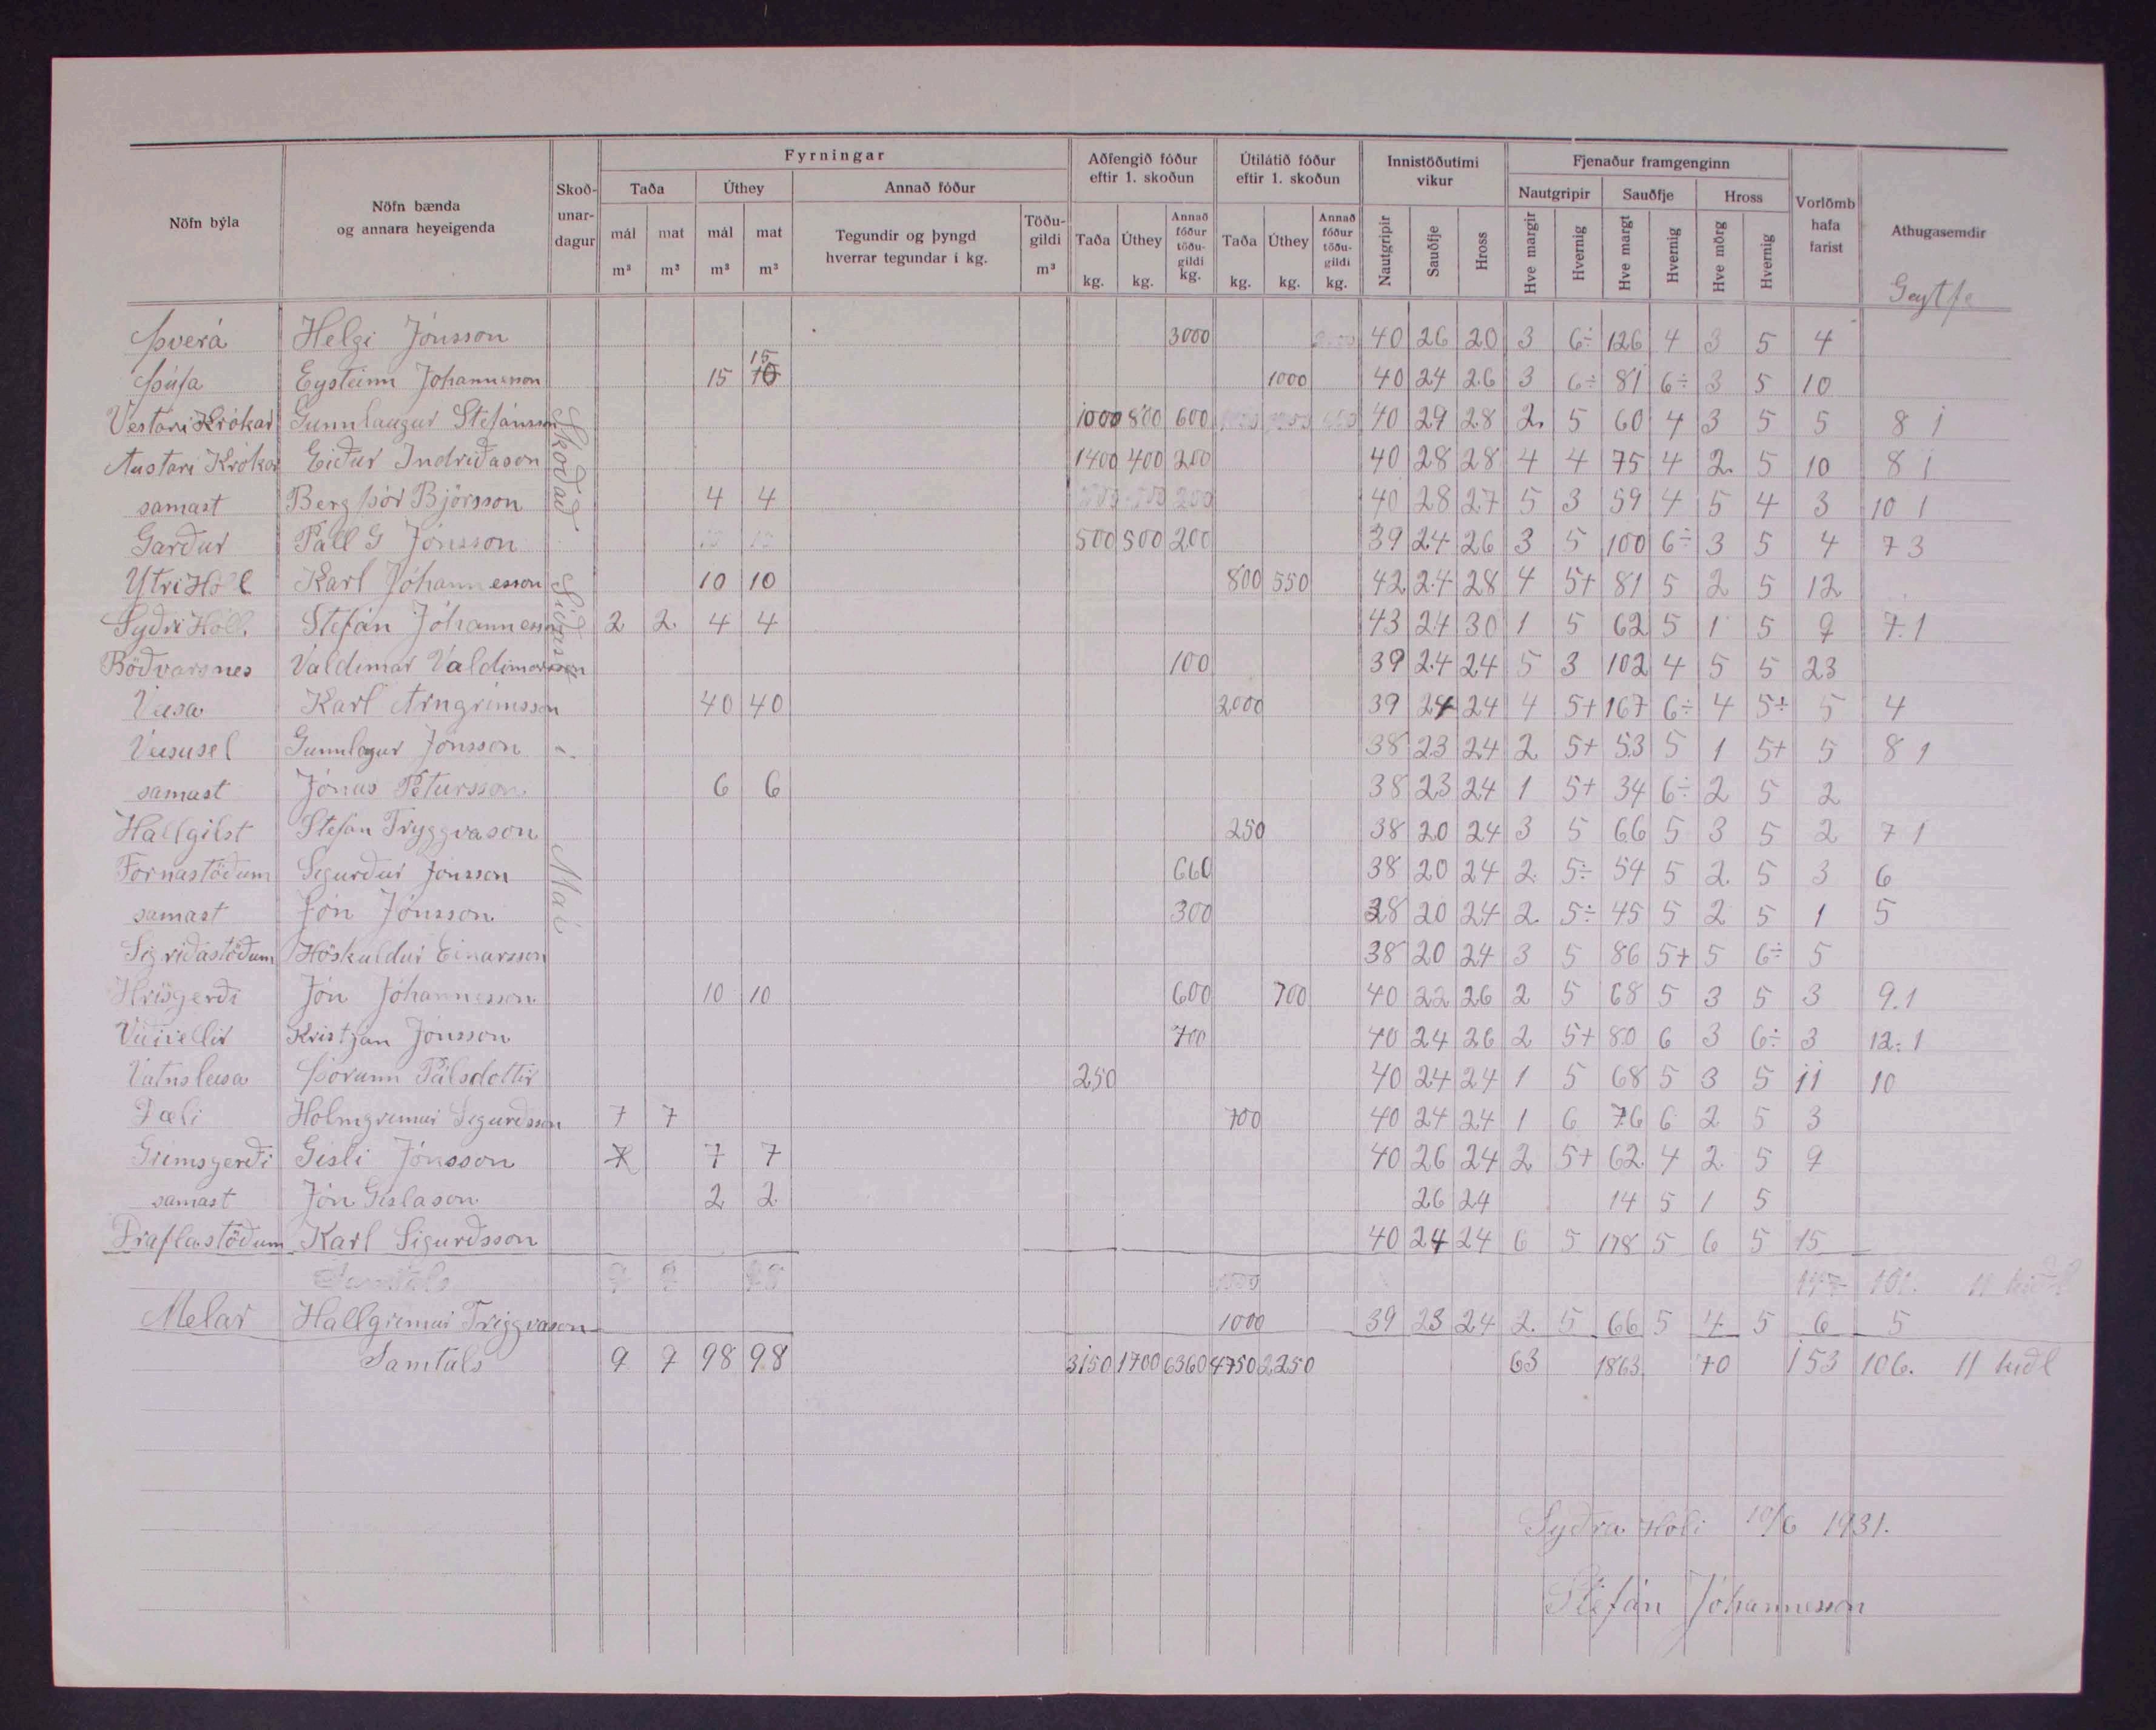 Fyrningar
Aðfengið fóður eftir 1. skoðun
Útilátið fóður eftir 1. skoðun
Innistöðutími vikur
Fjenaður framgenginn
Nöfn býla
Nöfn bænda og annara heyeigenda
Skoð-unar-dagur
Taða
Úthey
Annað fóður
Nautgripir
Sauðfje
Hross
Vorlömb hafa farist
Athugasemdir
mál m³
mat m³
mál m³
mat m³
Tegundir og þyngd hverrar tegundar í kg.
Töðu-gildi m³
Taða kg.
Úthey kg.
Annað fóður töðu-gildi kg.
Taða kg.
Úthey kg.
Annað fóður töðu-gildi kg.
Nautgripir
Sauðfje
Hross
Hve margir
Hvernig
Hve margt
Hvernig
Hve mörg
Hvernig
Geytfe
Skoðað Síðast Maí
Þverá Helgi Jónsson 3000 40 26 20 3 6÷ 126 4 3 5 4
Þúfa Eysteinn Jóhannesson 15 15 1000 40 24 26 3 6÷ 81 6÷ 3 5 10
Vestari Krókar Gunnlaugur Stefánsson 1000 800 600 40 29 28 2 5 60 4 3 5 5 8 1
Austari Krókar Eiður Indriðason 1400 400 200 40 28 28 4 4 75 4 2 5 10 8 1
samast Bergþór Björsson 4 4 200 40 28 27 5 3 59 4 5 4 3 10 1
Garður Páll G Jónsson 500 500 200 39 24 26 3 5 100 6÷ 3 5 4 7 3
Ytri Hóll Karl Jóhannesson 10 10 800 550 42 24 28 4 5+ 81 5 2 5 12
Syðri Hóll Stefán Jóhannesson 2 2 4 4 43 24 30 1 5 62 5 1 5 9 7.1
Böðvarsnes Valdimar Valdimarsson 100 39 24 24 5 3 102 4 5 5 23
Veisa Karl Arngrímsson 40 40 2000 39 24 24 4 5+ 167 6÷ 4 5+ 5 4
Veisusel Gunnlagur Jónsson 38 23 24 2 5+ 53 5 1 5+ 5 8 1
samast Jónas Pétursson 6 6 38 23 24 1 5+ 34 6÷ 2 5 2
Hallgilst Stefan Tryggvason 250 38 20 24 3 5 66 5 3 5 2 7 1
Fornastöðum Sigurður Jónsson 660 38 20 24 2 5÷ 54 5 2 5 3 6
samast Jón Jónsson 300 38 20 24 2 5÷ 45 5 2 5 1 5
Sigriðastöðum Höskuldur Einarsson 38 20 24 3 5 86 5+ 5 6÷ 5
Hrísgerði Jón Jóhannesson 10 10 600 700 40 22 26 2 5 68 5 3 5 3 9.1
Kristjan Jónsson 700 40 24 26 2 5+ 80 6 3 6÷ 3 12.1
Vatnsleisa Þórunn Pálsdottir 250 40 24 24 1 5 68 5 3 5 11 10
Dæli Holmgrímur Sigurðsson 7 7 700 40 24 24 1 6 76 6 2 5 3
Grímsgerði Gísli Jónsson 7 7 40 26 24 2 5+ 62 4 2 5 9
samast Jón Gíslason 2 2 26 24 14 5 1 5
Draflastöðum Karl Sigurðsson 40 24 24 6 5 178 5 6 5 15
Melar Hallgrímur Triggvason 1000 39 23 24 2 5 66 5 4 5 6 5
Samtals 9 9 98 98 3150 1700 6360 4750 2250 63 1863 70 153 106. 11 kiðl
Syðra Hóli 10/6 1931.
Stefán Jóhannesson